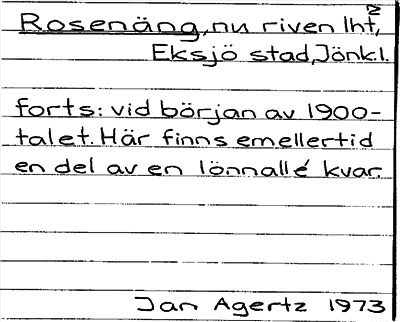 2
Rosenäng, nu riven lht,
Eksjö stad, Jönk.l.
forts: vid början av 1900-
talet. Här finns emellertid
en del av en lönnallé kvar.
Jan Agertz 1973